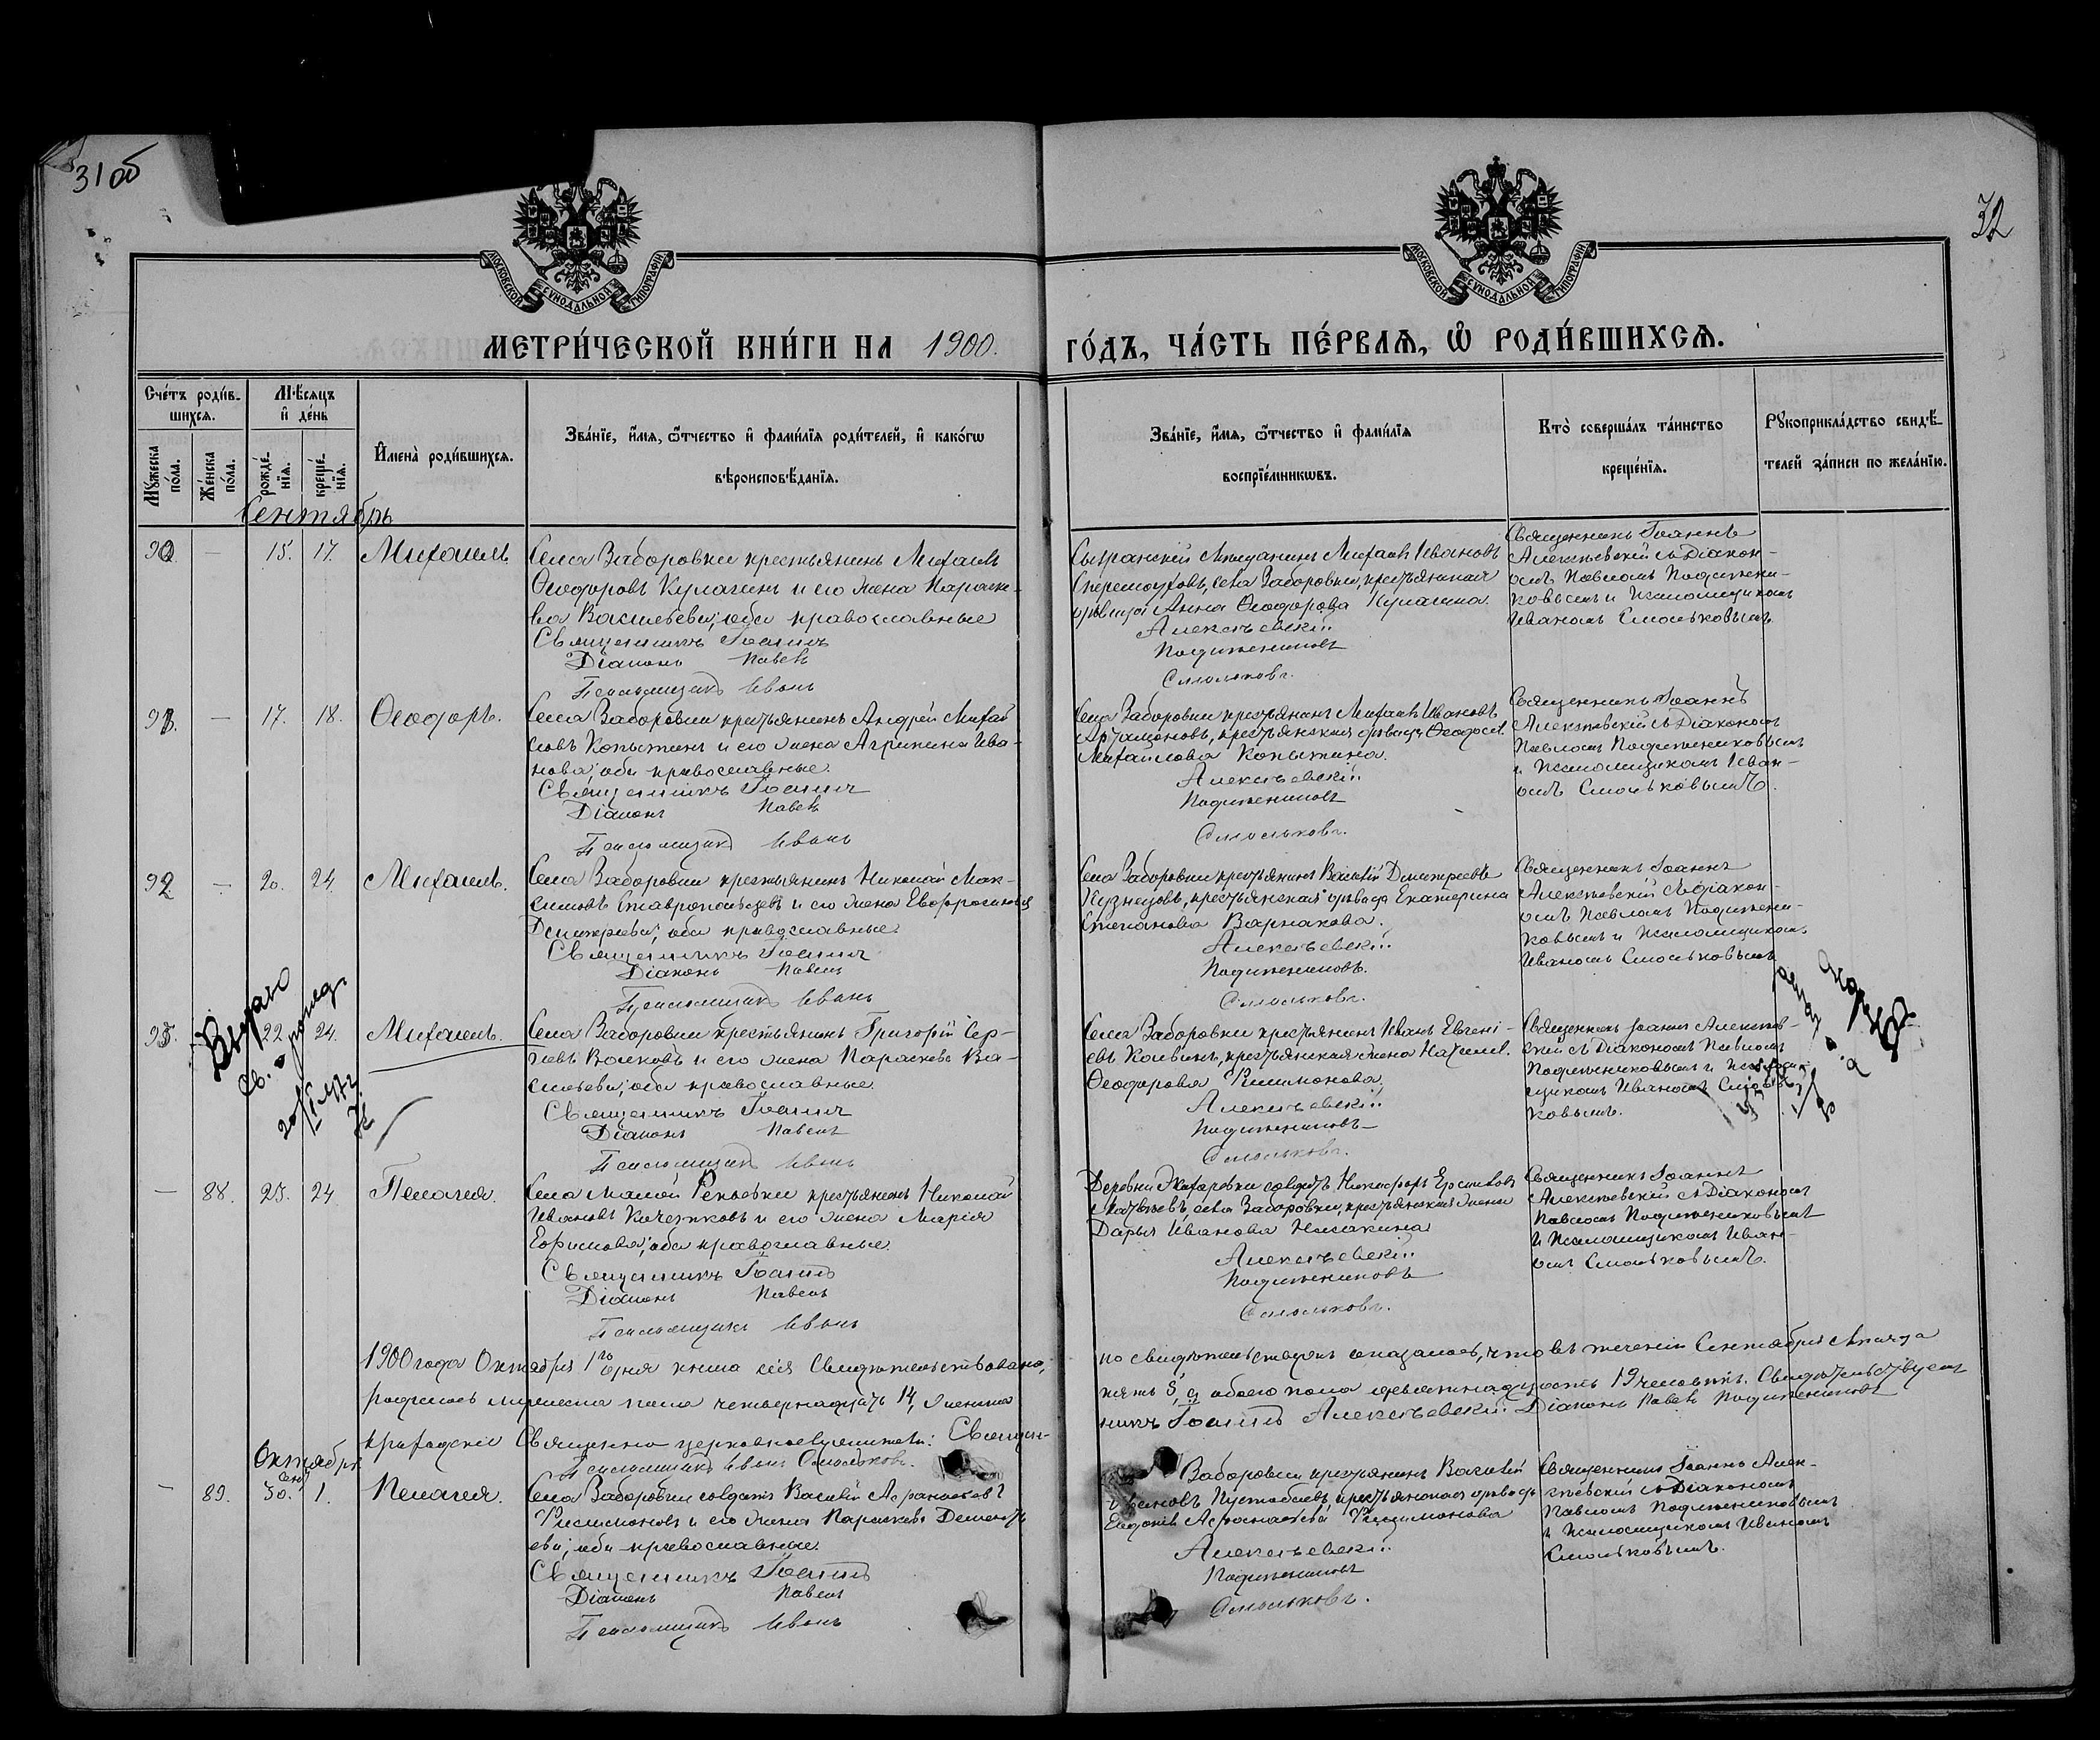 31 об
32
МОСКОВСКОЙ СУНОДАЛЬНОЙ ТИПОГРАФІИ
МОСКОВСКОЙ СУНОДАЛЬНОЙ ТИПОГРАФІИ
МЕТРИ́ЧЕСКОЙ КНИ́ГИ НА 1900. ГО́ДЪ, ЧА́СТЬ ПЕ́РВАѦ, Ѡ҆ РОДИ́ВШИХСѦ.
Сче́тъ роди́в-
шихсѧ.
Мѣ́сѧцъ
и҆ де́нь
И҆мена̀ роди́вшихсѧ.
Зва́нїе, и҆́мѧ, ѻ҆́тчество и҆ фами́лїѧ роди́телей, и҆ како́гѡ
вѣроисповѣ́данїѧ.
Зва́нїе, и҆́мѧ, ѻ҆́тчество и҆ фами́лїѧ
воспрїе́мникѡвъ.
Кто̀ соверша́лъ та́инство
креще́нїѧ.
Рꙋкоприкла́дство свидѣ́-
телей за́писи по жела́нїю.
Мꙋ́жеска
по́ла.
Же́нска
по́ла.
рожде́-
нїѧ.
креще́-
нїѧ.
Сентябрь
90 — 15. 17. Михаилъ.
Села Заборовки крестьянинъ Михаилъ
Ѳеодоровъ Кулагинъ и его жена Параске-
ва Васильева; оба православные
Священникъ Іоаннъ
Діаконъ Павелъ
Псаломщикъ Иванъ
Сызранскій мѣщанинъ Михаилъ Ивановъ
села Заборовки, крестьянская
дѣвица Анна Ѳеодорова Кулагина.
Алексѣевскій
Подъячениковъ
Смольковъ.
Священникъ Іоаннъ
Алексѣевскій съ Діакон-
омъ Павломъ
ковымъ и псаломщикомъ
Иваномъ Смольковымъ.
91. — 17. 18. Ѳеодоръ.
Села Заборовки крестьянинъ Андрей Михай
ловъ Копытинъ и его жена Агрипина Ива-
нова; оба православные.
Священникъ Іоаннъ
Діаконъ Павелъ
Псаломщикъ Иванъ
Села Заборовки крестьянинъ Михаилъ Ивановъ
Артамоновъ, крестьянская дѣвица Ѳеодос.
Михайлова Копытина.
Алексѣевскій
Смольковъ.
Священникъ Іоаннъ
Алексѣевскій съ Діакономъ
Павломъ
и псаломщикомъ Иван-
омъ Смольковымъ.
92 — 20. 24. Михаилъ.
Села Заборовки крестьянинъ Николай Мак-
симовъ Ставропольцевъ и его жена Евфросинія
Димитріева; оба православные
Священникъ Іоаннъ
Діаконъ Павелъ
Псаломщикъ Иванъ
Села Заборовки крестьянинъ Василій Димитріевъ
Кузнецовъ, крестьянская дѣвица Екатерина
Степанова Варнакова.
Алексѣевскій
Смольковъ.
Священникъ Іоаннъ
Алексѣевскій съ Діакон-
омъ Павломъ
ковымъ и псаломщикомъ
Иваномъ Смольковымъ
93. — 22 24. Михаилъ.
Села Заборовки крестьянинъ Григорій Сер-
гѣевъ Волковъ и его жена Параскева Ва-
сильева; оба православные.
Священникъ Іоаннъ
Діаконъ Павелъ
Псаломщикъ Иванъ
Села Заборовки крестьянинъ Иванъ Евгені-
евъ крестьянская жена
Ѳеодорова Филимонова.
Алексѣевскій
Смольковъ.
Священникъ Іоаннъ Алексѣев-
скій съ Діакономъ Павломъ
щикомъ Иваномъ Смоль-
ковымъ.
Выдано
св. о рожд.
— 88. 23. 24. Пелагія.
Села Малой Репьевки крестьянинъ Николай
Ивановъ и его жена Марія
Ефимова; оба православные.
Священникъ Іоаннъ
Діаконъ Павелъ
Псаломщикъ Иванъ
Деревни солдатъ Никифоръ
Матвѣевъ, села Заборовки, крестьянская жена
Дарья Иванова
Алексѣевскій
Смольковъ.
Священникъ Іоаннъ
Алексѣевскій съ Діакономъ
Павломъ
и псаломщикомъ Иван-
омъ Смольковымъ.
1900 года Октября 1го дня книга сія свидѣтельствована, по свидѣтельствѣ оказалось, что въ теченіи Сентября мѣсяца
родилось мужеска пола четырнадцать 14, женска пять 5, а обоего пола девятнадцать 19 человѣкъ. Свидѣтельствуемъ
приходскіе Священно церковнослужители: Священ- никъ Іоаннъ Алексѣевскій Діаконъ Павелъ
Псаломщикъ Иванъ Смольковъ.
Октябрь
— 89. Сен. 30. 1. Пелагія.
Села Заборовки солдатъ Василій Аѳанасьевъ
Филимоновъ и его жена Параскева Дементь
ева; оба православные.
Священникъ Іоаннъ
Діаконъ Павелъ
Псаломщикъ Иванъ
Заборовки крестьянинъ Василій
Ивановъ Пустобаевъ, крестьянская дѣвица
Евдокія Аѳанасьева Филимонова
Алексѣевскій
Смольковъ.
Священникъ Іоаннъ Алек-
сѣевскій съ Діакономъ
Павломъ
и псаломщикомъ Иваномъ
Смольковымъ.